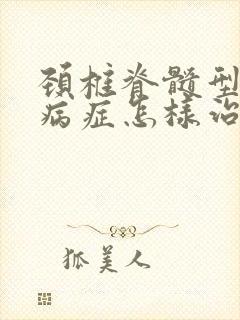 颈椎脊髓型
病症怎样治
狐美人